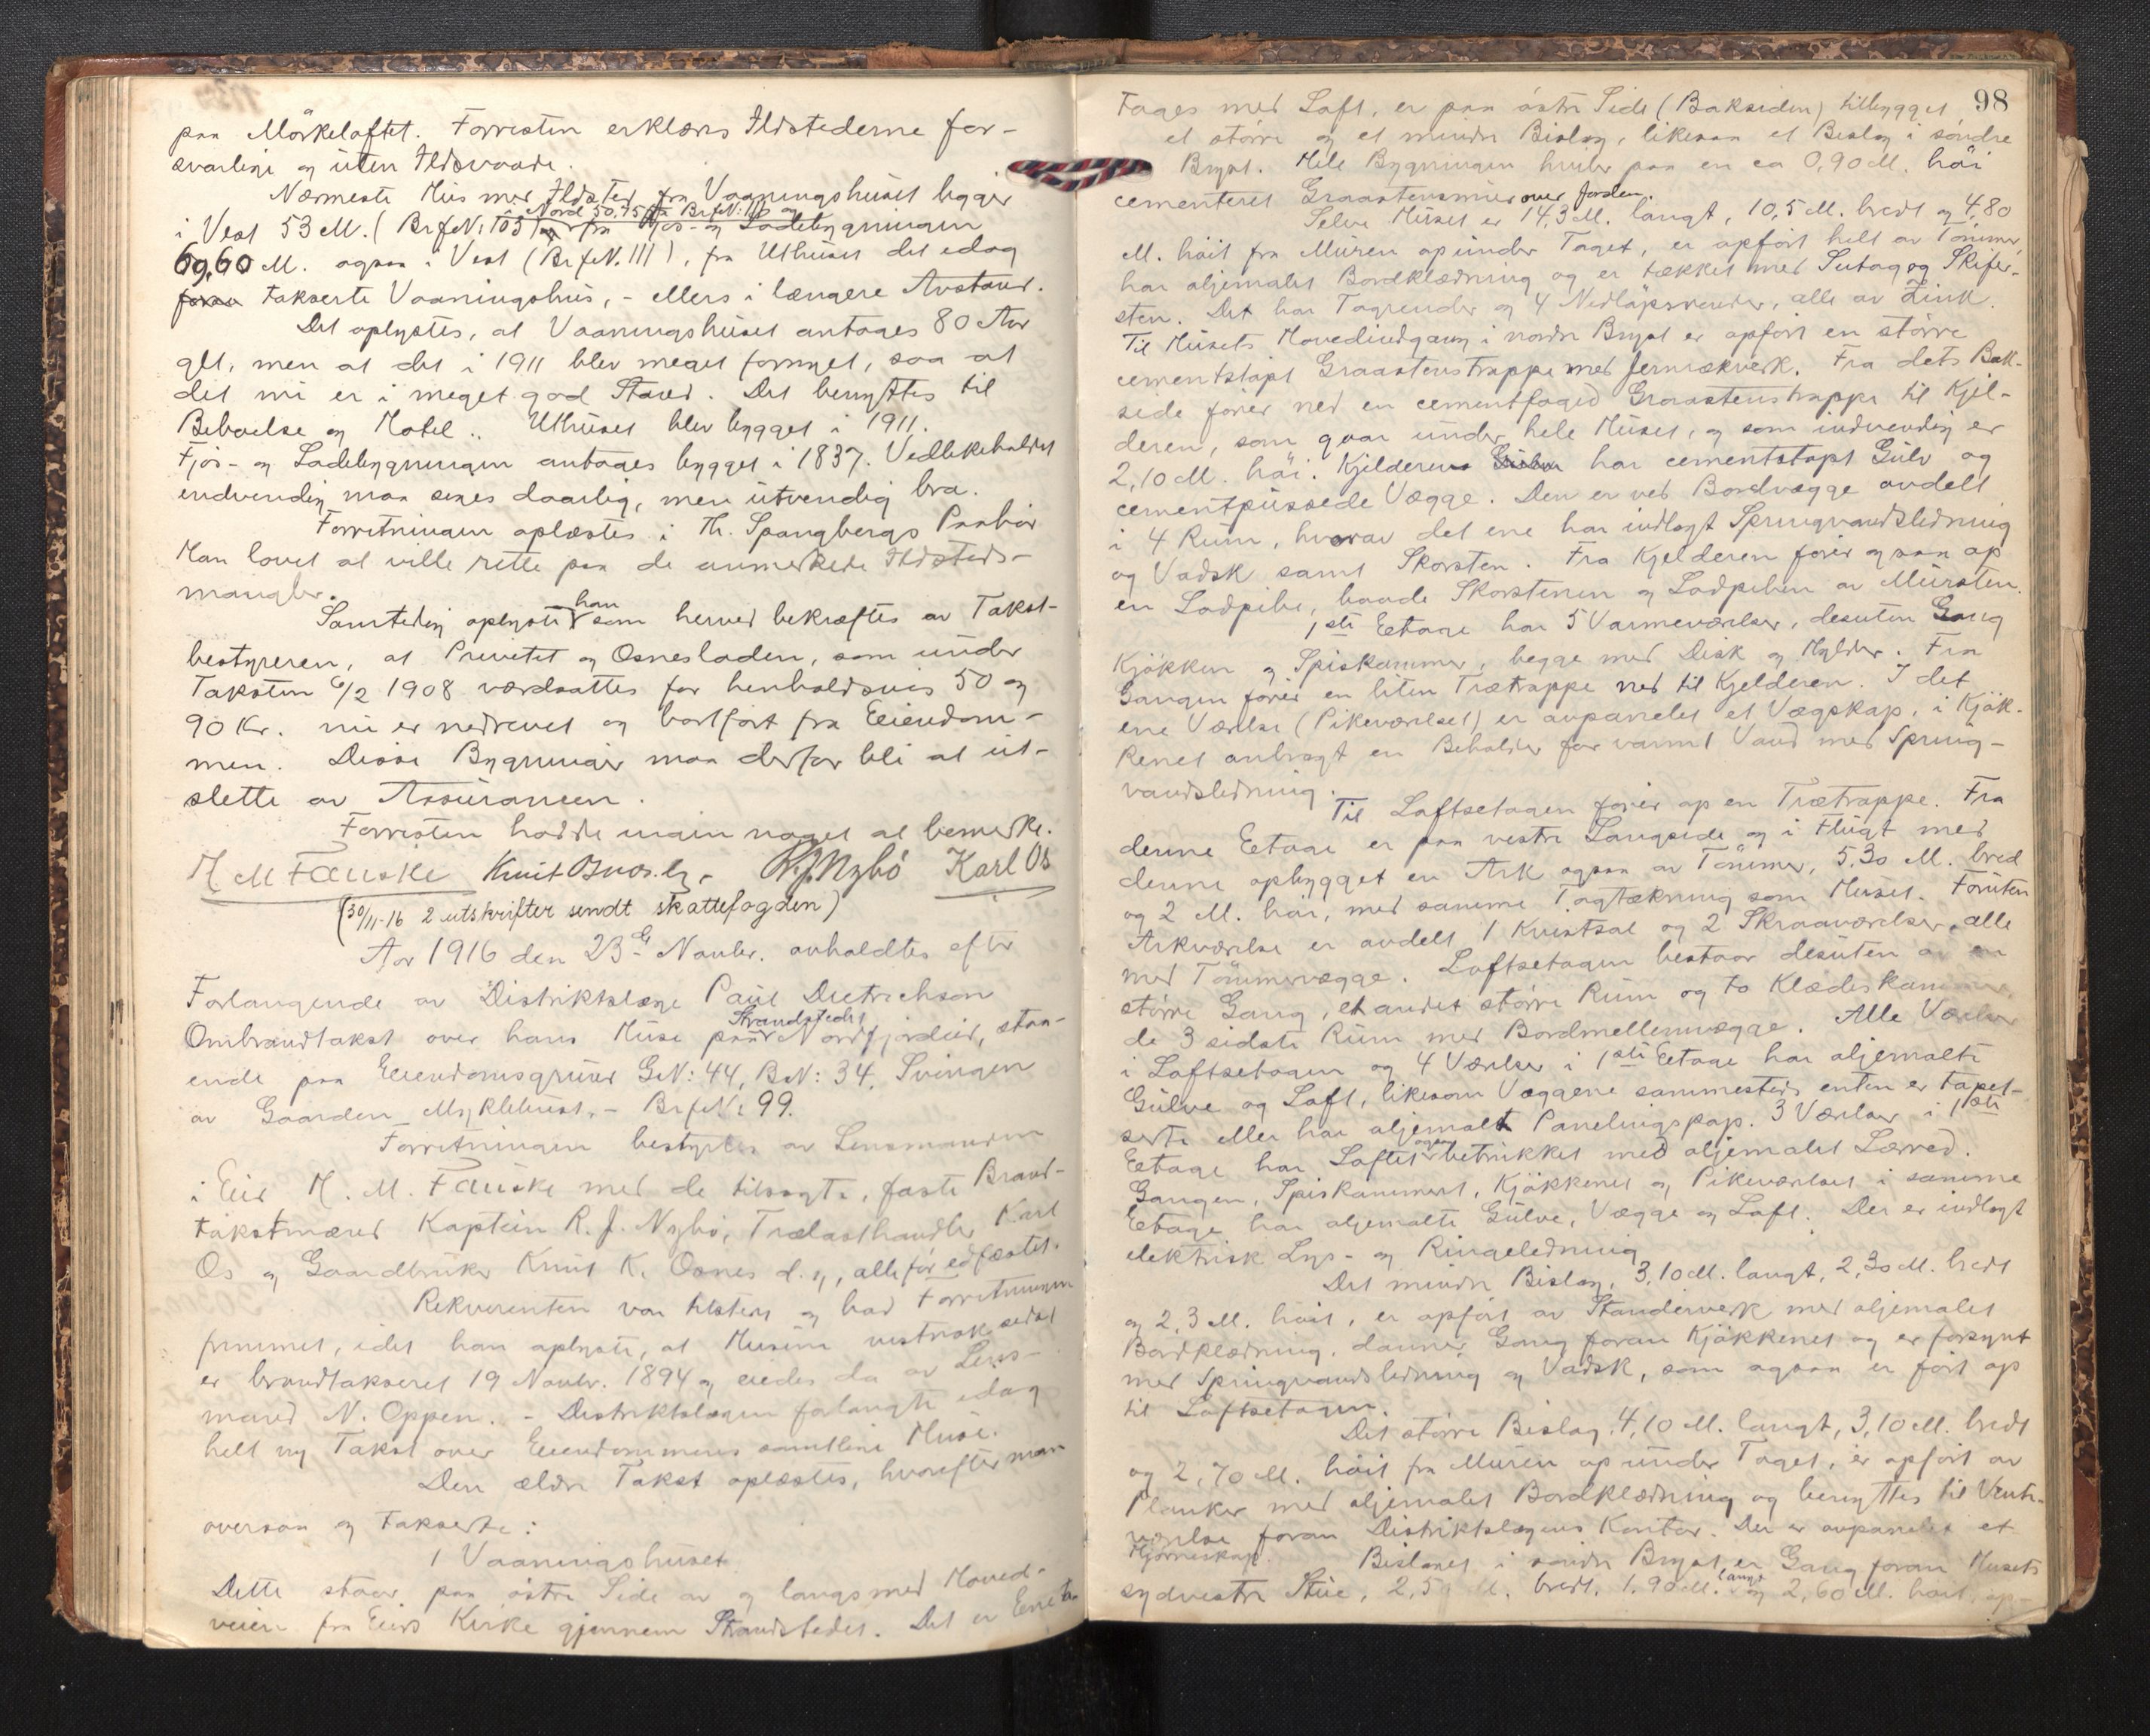 paa Mörkeloftet. Forresten erklæres Ildstederne for-
svarlige og uten Ildsvaade.
Nærmeste Hus med Ildsted fra Vaaningshuset ligger
Nord 50,75 fra BrfN: 110 og
i Vest 53 M. (BrfN: 105) og fra Fjös- og Ladebygningen
69,60 M. ogsaa i Vest (BrfN. 111), fra Uthuset det idag
foran takserte Vaaningshus, - ellers i længere Avstand.
Det oplystes, at Vaaningshuset antages 80 Aar
glt, men at det i 1911 blev meget fornyet, saa at
det nu er i meget god Stand. Det benyttes til
Beboelse og Hotel. Uthuset blev bygget i 1911.
Fjös- og Ladebygningen antages bygget i 1837. Vedlikeholdet
indvendig maa siges daarlig, men utvendig bra.
Forretningen oplæstes i Th. Spangbergs Paahör
Han lovet at ville rette paa de anmerkede Ildsteds-
mangler.
Samtidig oplyste han som herved bekræftes av Takst-
bestyreren, at Privetet og Osnesladen, som under
Taksten 6/2 1908 værdsattes for henholdsvis 50 og
90 Kr. nu er nedrevet og bortfört fra Eiendom-
men. Disse Bygninger maa derfor bli at ut-
slette av Assurancen.
Forresten hadde ingen noget at bemerke.
H M Fauske Knut Osnes d.y. R.J. Nybö Karl Os
(30/11-16 2 utskrifter sendt skattefogden)
Aar 1916 den 23de Novbr. avholdtes efter
Forlangende av Distriktslæge Paul Dietrichson
Ombrandtakst over hans Huse paa Strandstedet Nordfjordeid, staa-
ende paa Eiendomsgrund GN: 44, BN: 34, Svingen
av Gaarden Myklebust, - BrfN: 99.
Forretningen bestyrtes av Lensmanden
i Eid H. M. Fauske med de tilsagte, faste Brand-
takstmænd Kaptein R. J. Nybö, Trælasthandler Karl
Os og Gaardbruker Knut K. Osnes d. y, alle för edfæstet.
Rekvirenten var tilstede og bad Forretningen
fremmet, idet han oplyste, at Husene vistnok sidst
er brandtakseret 19 Novbr. 1894 og eiedes da av Lens-
mand N. Oppen. - Distriktslægen forlangte idag
helt ny Takst over Eiendommens samtlige Huse.
Den ældre Takst oplæstes, hvorefter man
oversaa og takserte:
1 Vaaningshuset.
Dette staar paa östre Side av og langsmed Hoved-
veien fra Eids Kirke gjennem Strandstedet. Det er Een eta-
98
tages med Loft, er paa östre Side (Baksiden) tilbygget
et större og et mindre Bislag, likesaa et Bislag i söndre
Bryst. Hele Bygningen hviler paa en ca 0,90 M. höi
cementeret Graastensmur over Jorden.
Selve Huset er 14,3 M. langt, 10,5 M. bredt og 4,80
M. höit fra Muren op under Taget, er opfört helt av Tömmer,
har oljemalet Bordklædning og er tækket med Sutag og Skifer-
sten. Det har Tagrender og 4 Nedlöpsrender, alle av Zink.
Til Husets Hovedindgang i nordre Bryst er opfört en större
cementstöpt Graastenstrappe med Jernrækverk. Fra dets Bak-
side förer ned en cementfaged Graastenstrappe til Kjel-
deren, som gaar under hele Huset, og som indvendig er
2,10 M. höi. Kjelderen har cementstöpt Gulv og
cementpussede Vægge. Den er ved Bordvægge avdelt
i 4 Rum, hvorav det ene har indlagt Springvandsledning
og Vadsk samt Skorsten. Fra Kjelderen förer ogsaa op
en Lodpibe, baade Skorstenen og Lodpiben av Mursten.
1ste Eetage har 5 Varmeværelser, desuten Gang
Kjökken og Spiskammer, begge med Disk og Hylder. Fra
Gangen förer en liten Trætrappe ned til Kjelderen. I det
ene Værelse (Pikeværelset) er avpanelet et Vægskap, i Kjök-
kenet anbragt en Beholder for varmt Vand med Spring-
vandsledning.
Til Loftsetagen förer op en Trætrappe. Fra
denne Eetage er paa vestre Langside og i Flugt med
denne opbygget en Ark ogsaa av Tömmer, 5,30 M. bred
og 2 M. höi, med samme Tagtækning som Huset. Foruten
Arkværelse er avdelt 1 Kvistsal og 2 Skraaværelser, alle
med Tömmervægge. Loftsetagen bestaar desuten av en
större Gang, et andet större Rum og to Klædeskammer,
de 3 sidste Rum med Bordmellemvægge. Alle Værelser
i Loftsetagen og 4 Værelser i 1ste Eetage har oljemalte
Gulve og Loft, likesom Væggene sammesteds enten er tapet-
serte eller har oljemalt Panelingspap. 3 Værelser i 1ste
Eetage har Loftet ogsaa betrukket med oljemalet Lærred.
Gangen, Spiskammeret, Kjökkenet og Pikeværelset i samme
Eetage har oljemalte Gulve, Vægge og Loft. Der er indlagt
elektrisk Lys- og Ringeledning.
Det mindre Bislag, 3,10 M. langt, 2,30 M. bredt
og 2,3 M. höit, er opfört av Standerverk med oljemalet
Bordklædning, danner Gang foran Kjökkenet og er forsynt
med Springvandsledning og Vadsk, som ogsaa er fört op
til Loftsetagen.
Det större Bislag, 4,10 M. langt, 3,10 M. bredt
og 2,70 M. höit fra Muren op under Taget, er opfört av
Planker med oljemalet Bordklædning og benyttes til Vente-
værelse foran Distriktslægens Kontor. Der er avpanelet et
Hjörneskap. Bislaget i söndre Bryst er Gang foran Husets
sydvestre Stue, 2,5 M. bredt, 1,90 M. langt og 2,60 M. höit, op-